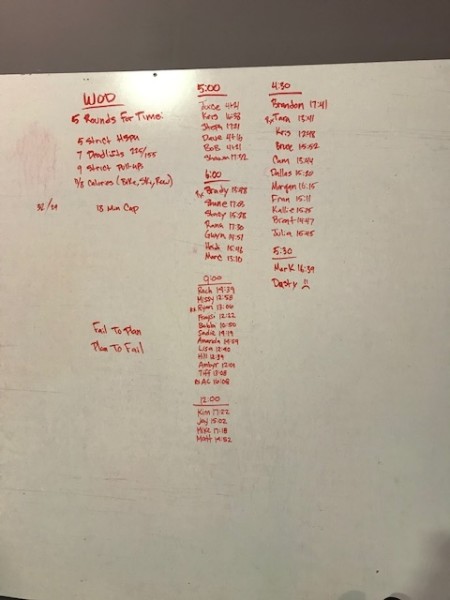 WOD
5 Rounds For Time:
5 Strict HSPU
7 Deadlifts 225/155
9 Strict Pull-ups
Calories (Bike, Ski, Row)
18 Min Cap
Fail To Plan
Plan To Fail
5:00
4+21
Kris 16:58
17:21
Dave 4+16
Bob 4+21
Shawn 17:52
6:00
Brady 15:48
Shane 17:03
Stacy 15:28
17:30
Gwyn 14:51
Heidi 15:46
Marc 13:10
9:00
Rach 14:29
Missy 12:58
Ryan 13:06
12:22
Bubba
Sadie 14:19
Amanda
Lisa 12:40
Hill 12:39
Amber 12:01
Tiff 13:08
16:08
12:00
Kim 17:52
Jay 15:02
Mike 17:18
Matt 14:52
4:30
Brandon 17:41
Rx Tara 13:41
Kris 12:48
Bruce 15:52
Cam 13:44
Dallas 15:20
Morgan 11:15
Fran 15:11
Kallie 15:25
Brent 14:47
Julia 15:45
5:30
Mark 16:39
Dusty